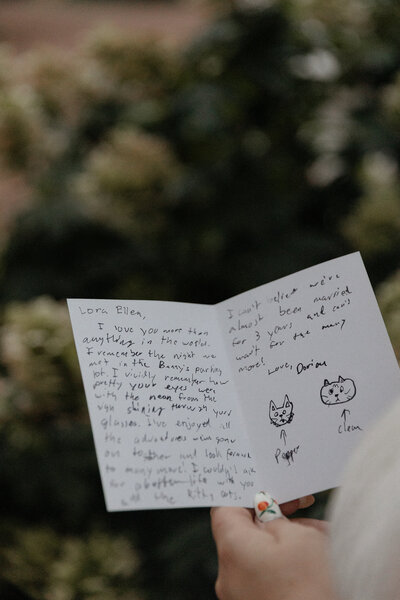 Lora Ellen,
I love you more than
anything in the world.
I remember the night we
met in the Barry's parking
lot. I vividly remember how
pretty your eyes were
with the neon from the
shining through your
glasses. I've enjoyed all
the adventures we've gone
on and look forward
to many more! I couldn't ask
for a better life with you
and the kitty cats.
I can't believe we've
almost been married
for 3 years and can't
wait for the many
more! Love, Dorian
Pepper
clem